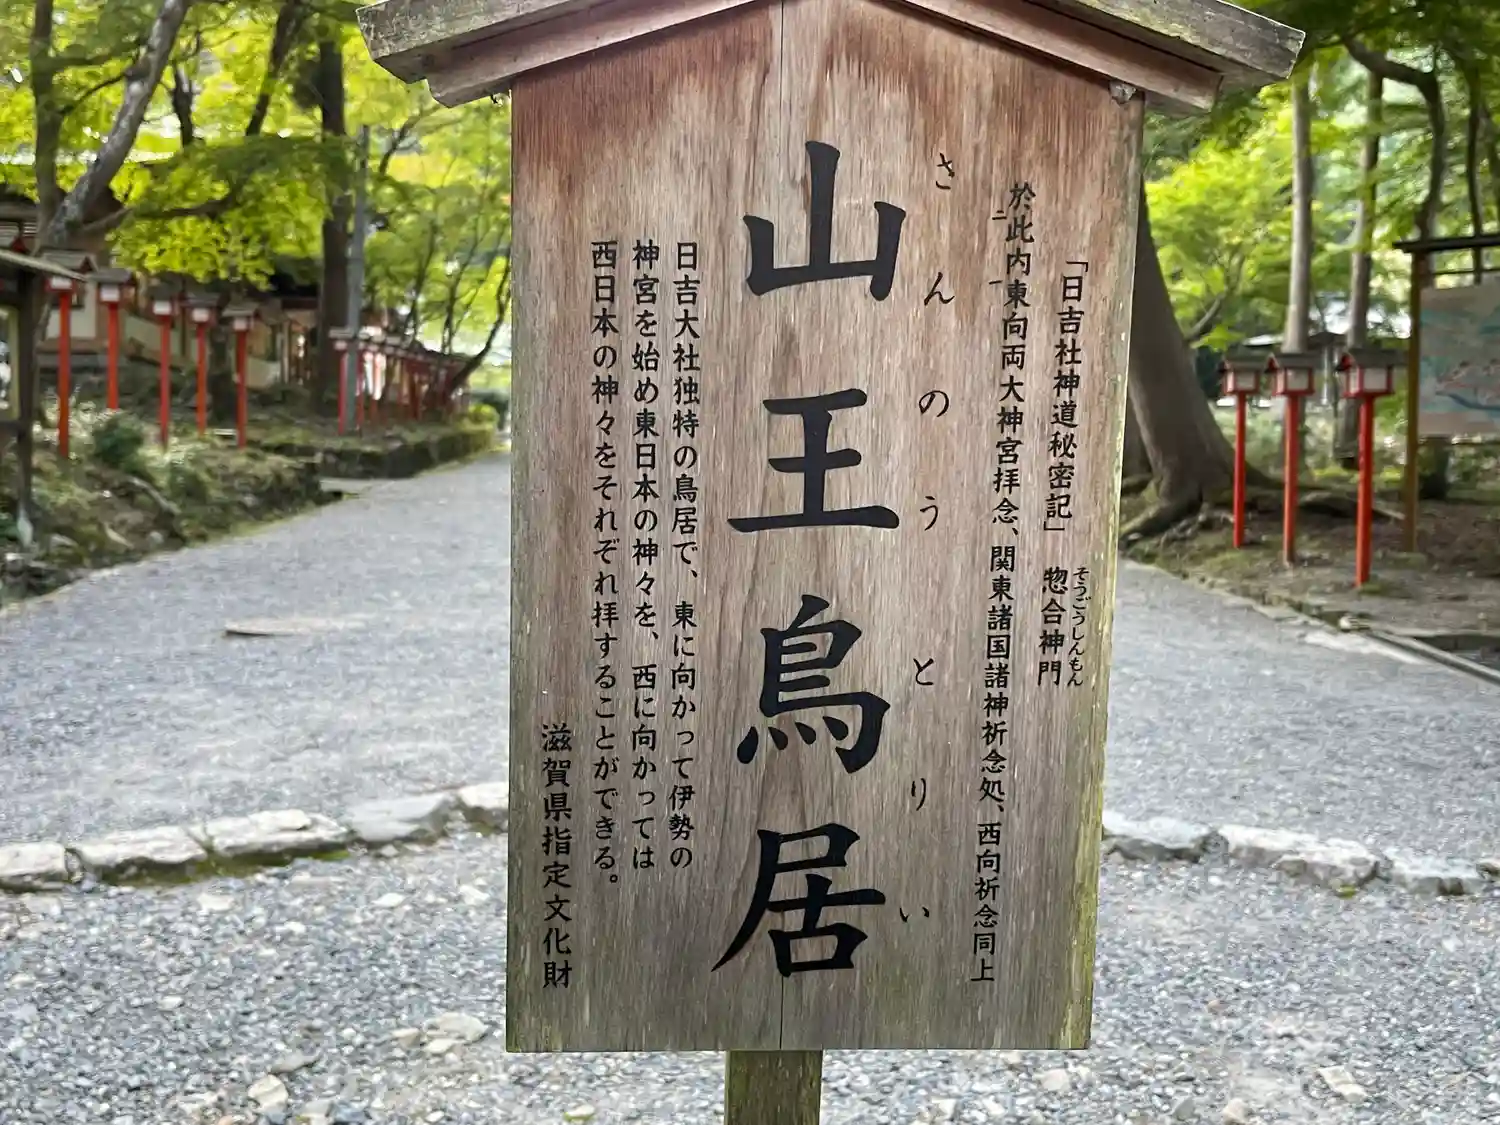 「日吉社神道秘密記」 惣合神門
そうごうしんもん
於此内東向両大神宮拝念、関東諸国諸神祈念処、西向祈念同上
二 一
さんのうとりい
山王鳥居
日吉大社独特の鳥居で、東に向かって伊勢の
神宮を始め東日本の神々を、西に向かっては
西日本の神々をそれぞれ拝することができる。
滋賀県指定文化財